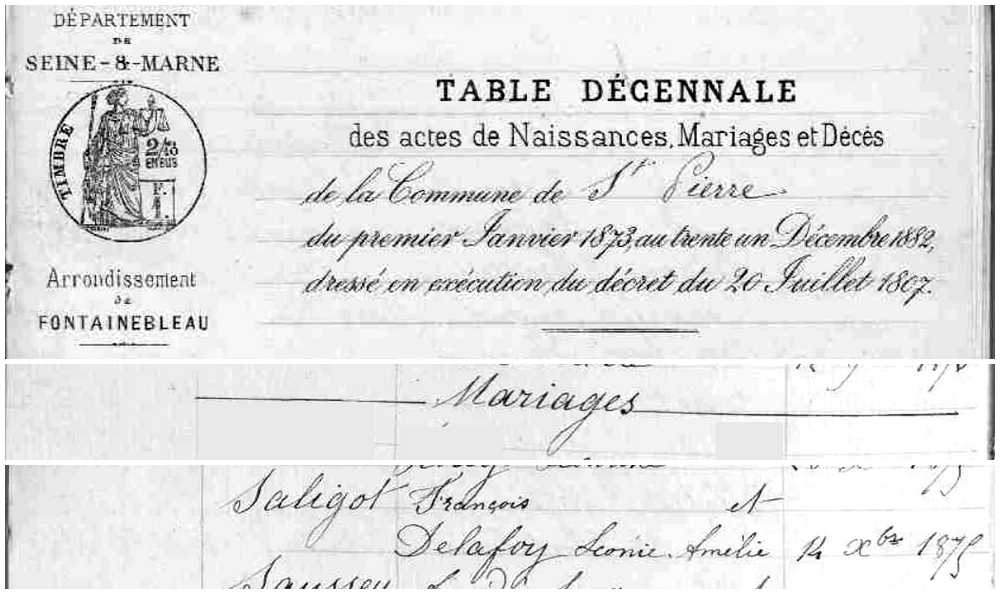 DÉPARTEMENT
DE
SEINE-&-MARNE
TIMBRE
2/10
EN SUS
F.
1.
TABLE DÉCENNALE
des actes de Naissances, Mariages et Décès
de la Commune de St Pierre
du premier Janvier 1873, au trente un Décembre 1882,
dressé en exécution du décret du 20 Juillet 1807.
Arrondissement
DE
FONTAINEBLEAU
Mariages
Saligot François et
Delafoy Léonie Amélie 14 Xbre 1875